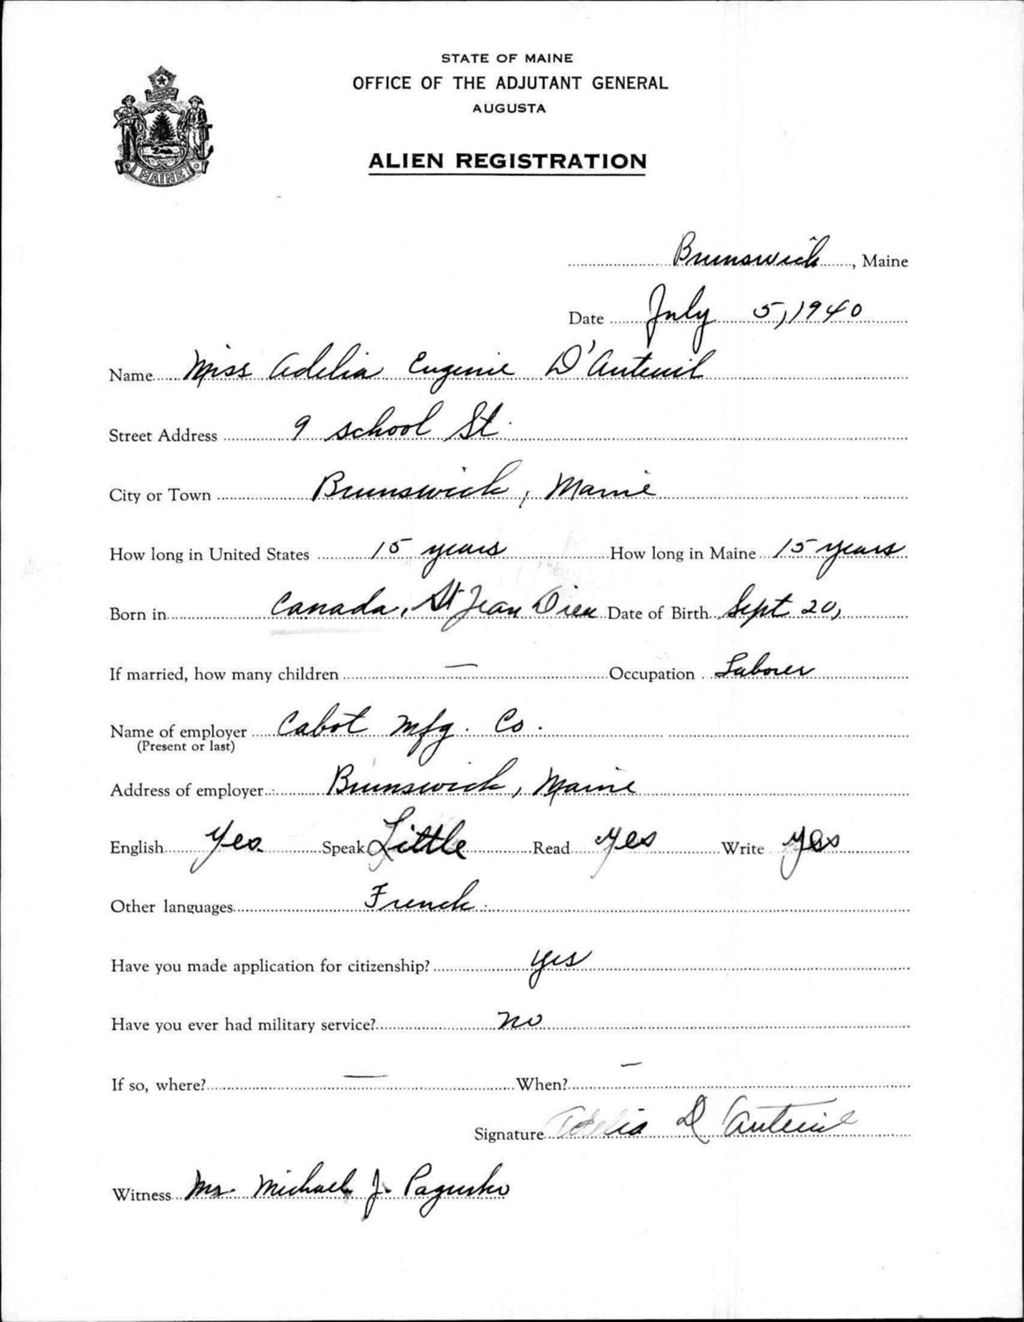 STATE OF MAINE
OFFICE OF THE ADJUTANT GENERAL
AUGUSTA
ALIEN REGISTRATION
MAINE
Brunswick, Maine
Date July 5, 1940
Name Miss Adelia Eugenie D'Auteuil
Street Address 9 school St.
City or Town Brunswick, Maine
How long in United States 15 years How long in Maine 15 years
Born in Canada, St Jean Dieu Date of Birth Sept 20,
If married, how many children — Occupation Laborer
Name of employer Cabot Mfg. Co.
(Present or last)
Address of employer Brunswick, Maine
English Yes Speak Little Read Yes Write Yes
Other languages French
Have you made application for citizenship? yes
Have you ever had military service? no
If so, where? — When? —
Signature Adelia D'Auteuil
Witness Mr. Michael J.